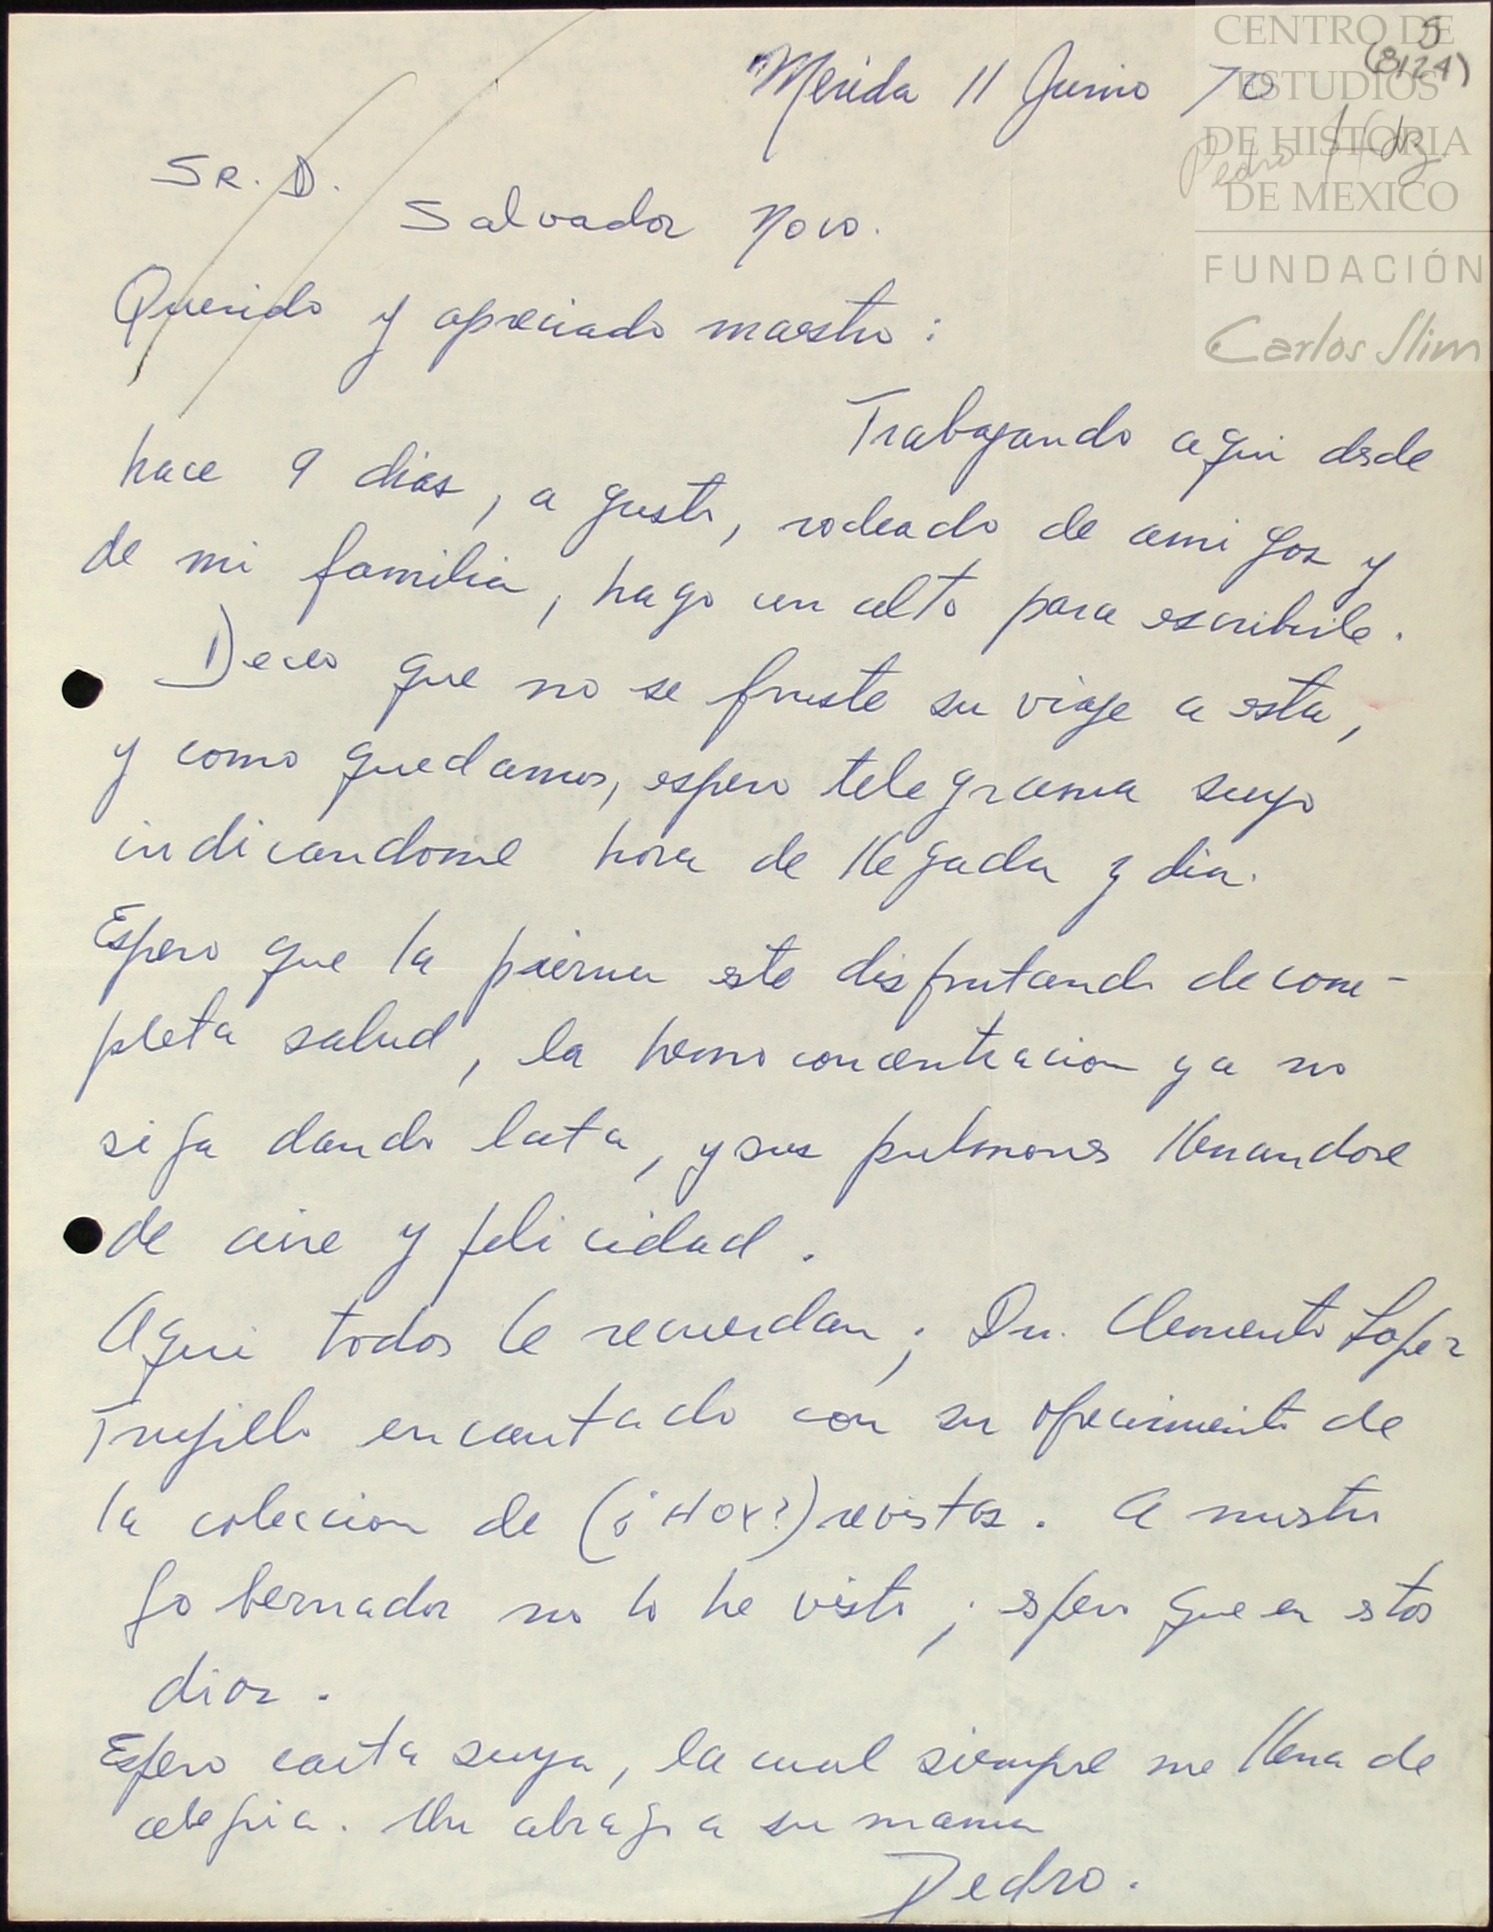 CENTRO DE
ESTUDIOS
DE HISTORIA
DE MEXICO
FUNDACIÓN
Carlos Slim
5
(8124)
Pedro Hdz.
Merida 11 Junio 70
SR. D.
Salvador Novo.
Querido y apreciado maestro:
Trabajando aqui desde
hace 9 dias, a gusto, rodeado de amigos y
de mi familia, hago un alto para escribirle.
Deceo que no se fruste su viaje a esta,
y como quedamos, espero telegrama suyo
indicandome hora de llegada y dia.
Espero que la pierna este disfrutando de com-
pleta salud, la hemoconcentracion ya no
siga dando lata, y sus pulmones llenandose
de aire y felicidad.
Aqui todos le recuerdan; Dn. Clemente Lopez
Trujillo encantado con su ofrecimiento de
la coleccion de (¿HOY?) revistas. A nuestro
gobernador no lo he visto; espero que en estos
dias.
Espero carta suya, la cual siempre me llena de
alegria. Un abrazo a su mama
Pedro.